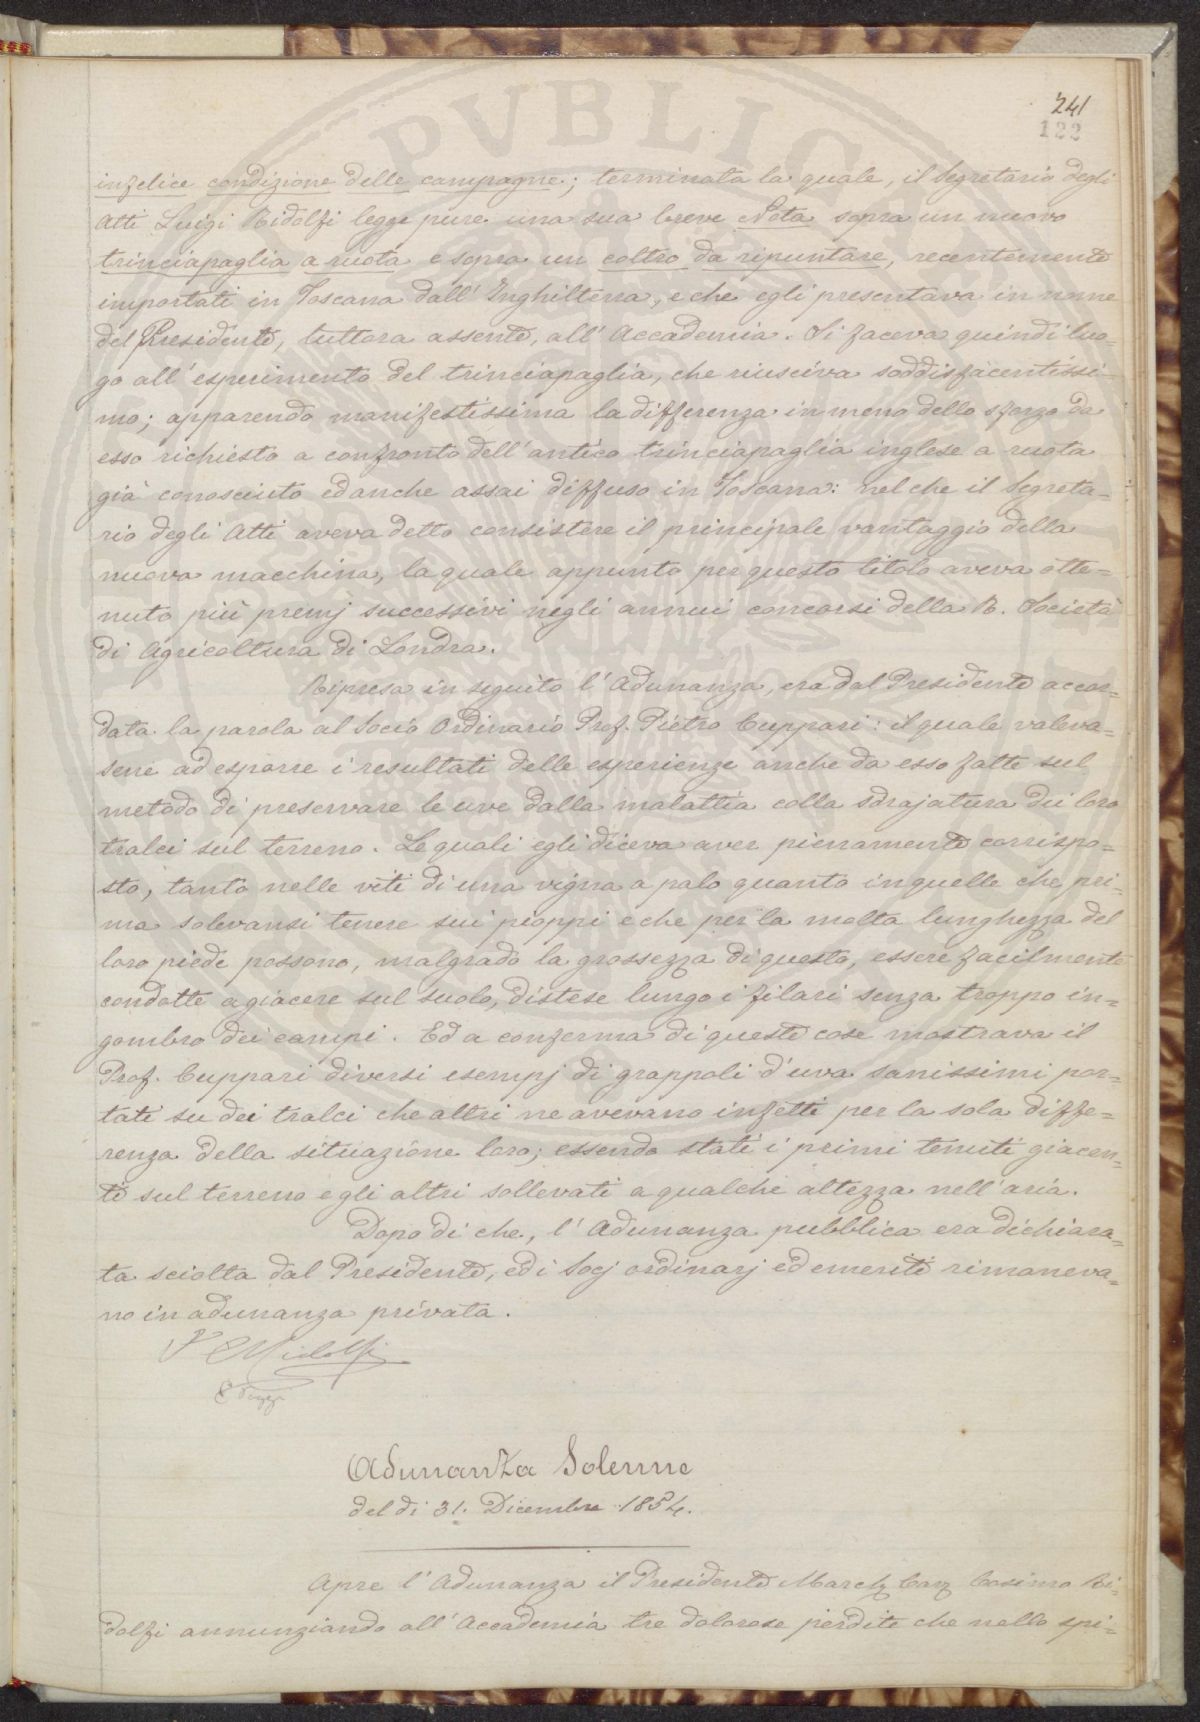 241
122
infelice condizione delle campagne; terminata la quale, il Segretario degli
Atti Luigi Ridolfi legge pure una sua breve Nota sopra un nuovo
trinciapaglia a ruota e sopra un coltro da ripuntare, recentemente
importati in Toscana dall'Inghilterra, e che egli presentava in nome
del Presidente, tuttora assente, all'Accademia. Si faceva quindi luo=
go all'esperimento del trinciapaglia, che riusciva soddisfacentissi=
mo; apparendo manifestissima la differenza in meno dello sforzo da
esso richiesto a confronto dell'antico trinciapaglia inglese a ruota
già conosciuto ed anche assai diffuso in Toscana: nel che il Segreta=
rio degli Atti aveva detto consistere il principale vantaggio della
nuova macchina, la quale appunto per questo titolo aveva otte=
nuto più premj successivi negli annui concorsi della R. Società
di Agricoltura di Londra.
Ripresa in seguito l'Adunanza, era dal Presidente accor=
data la parola al Socio Ordinario Prof. Pietro Cuppari: il quale valeva=
sene ad esporre i resultati delle esperienze anche da esso fatte sul
metodo di preservare le uve dalla malattia colla sdrajatura dei loro
tralci sul terreno. Le quali egli diceva aver pienamente corrispo=
sto, tanto nelle viti di una vigna a palo quanto in quelle che pri=
ma solevansi tenere sui pioppi e che per la molta lunghezza del
loro piede possono, malgrado la grossezza di questo, essere facilmente
condotte a giacere sul suolo, distese lungo i filari senza troppo in=
gombro dei campi. Ed a conferma di queste cose mostrava il
Prof. Cuppari diversi esempj di grappoli d'uva sanissimi por=
tati su dei tralci che altri ne avevano infetti per la sola diffe=
renza della situazione loro; essendo stati i primi tenuti giacen=
ti sul terreno e gli altri sollevati a qualche altezza nell'aria.
Dopo di che, l'Adunanza pubblica era dichiara=
ta sciolta dal Presidente, ed i Socj ordinarj ed emeriti rimaneva=
no in adunanza privata.
Ridolfi
Adunanza Solenne
del dì 31. Dicembre 1854.
Apre l'Adunanza il Presidente March. Cav. Cosimo Ri=
dolfi annunziando all'Accademia tre dolorose perdite che nello spa=